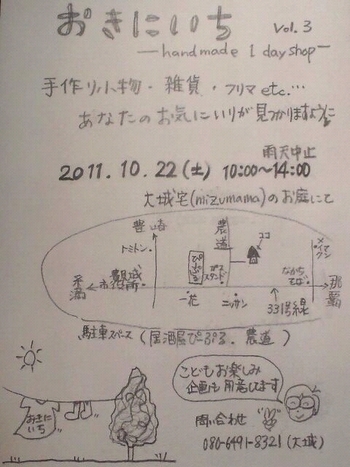 おきにいち vol.3
—handmade 1 day shop—
手作り小物・雑貨・フリマ etc…
あなたのお気にいりが見つかりますように
雨天中止
2011.10.22(土) 10:00~14:00
大城宅(mizumama)のお庭にて
豊崎
農道
トミトン
ココ
ぴぷる
ガススタンド
糸満
豊見城市役所
一花
ニッサン
331号線
那覇
駐車スペース(居酒屋ぴぷる、農道)
こどもお楽しみ
企画も用意してます
おきにいち
問い合わせ
080-6491-8321(大城)